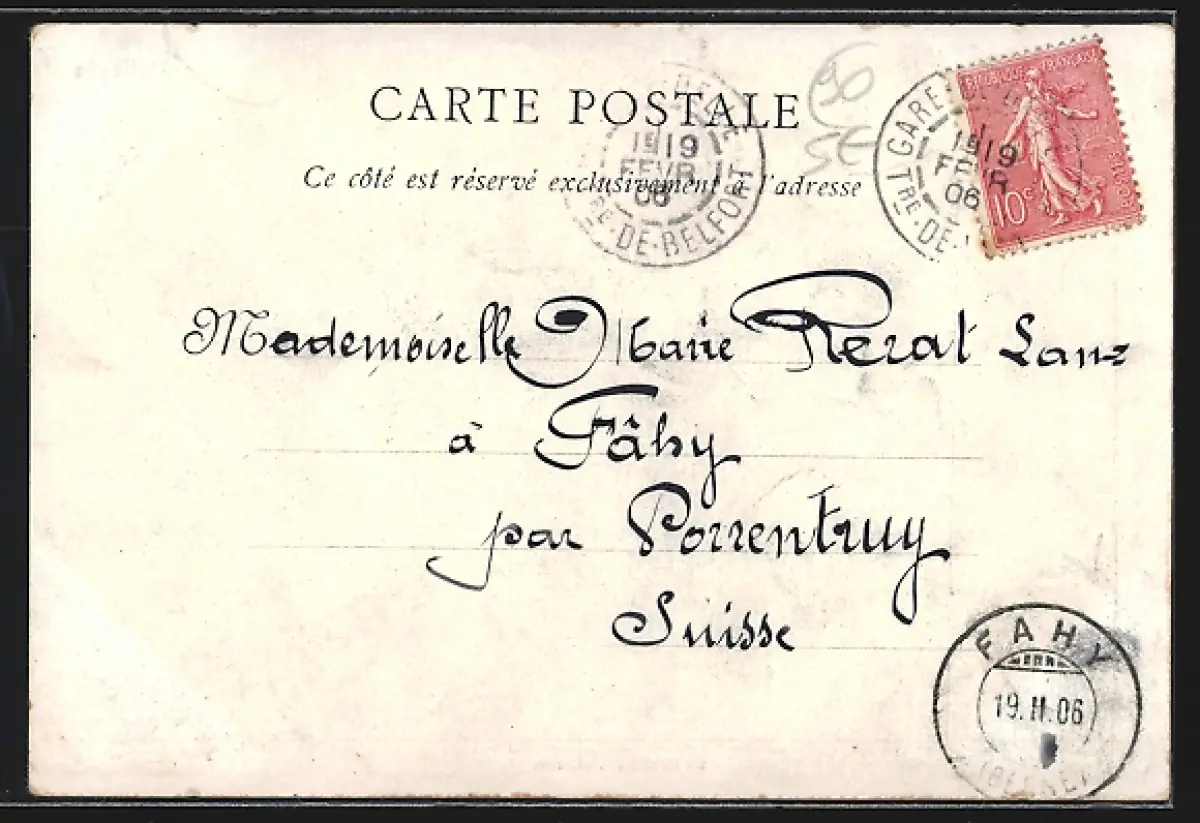 CARTE POSTALE
Ce côté est réservé exclusivement à l'adresse
19
FEVR
06
TRE-DE-BELFORT
REPUBLIQUE FRANÇAISE
10c
GARE
19
FEVR
06
TRE-DE
90
5€
Mademoiselle Marie Rerat Lanz
à Fâhy
par Porrentruy
Suisse
FAHY
19.II.06